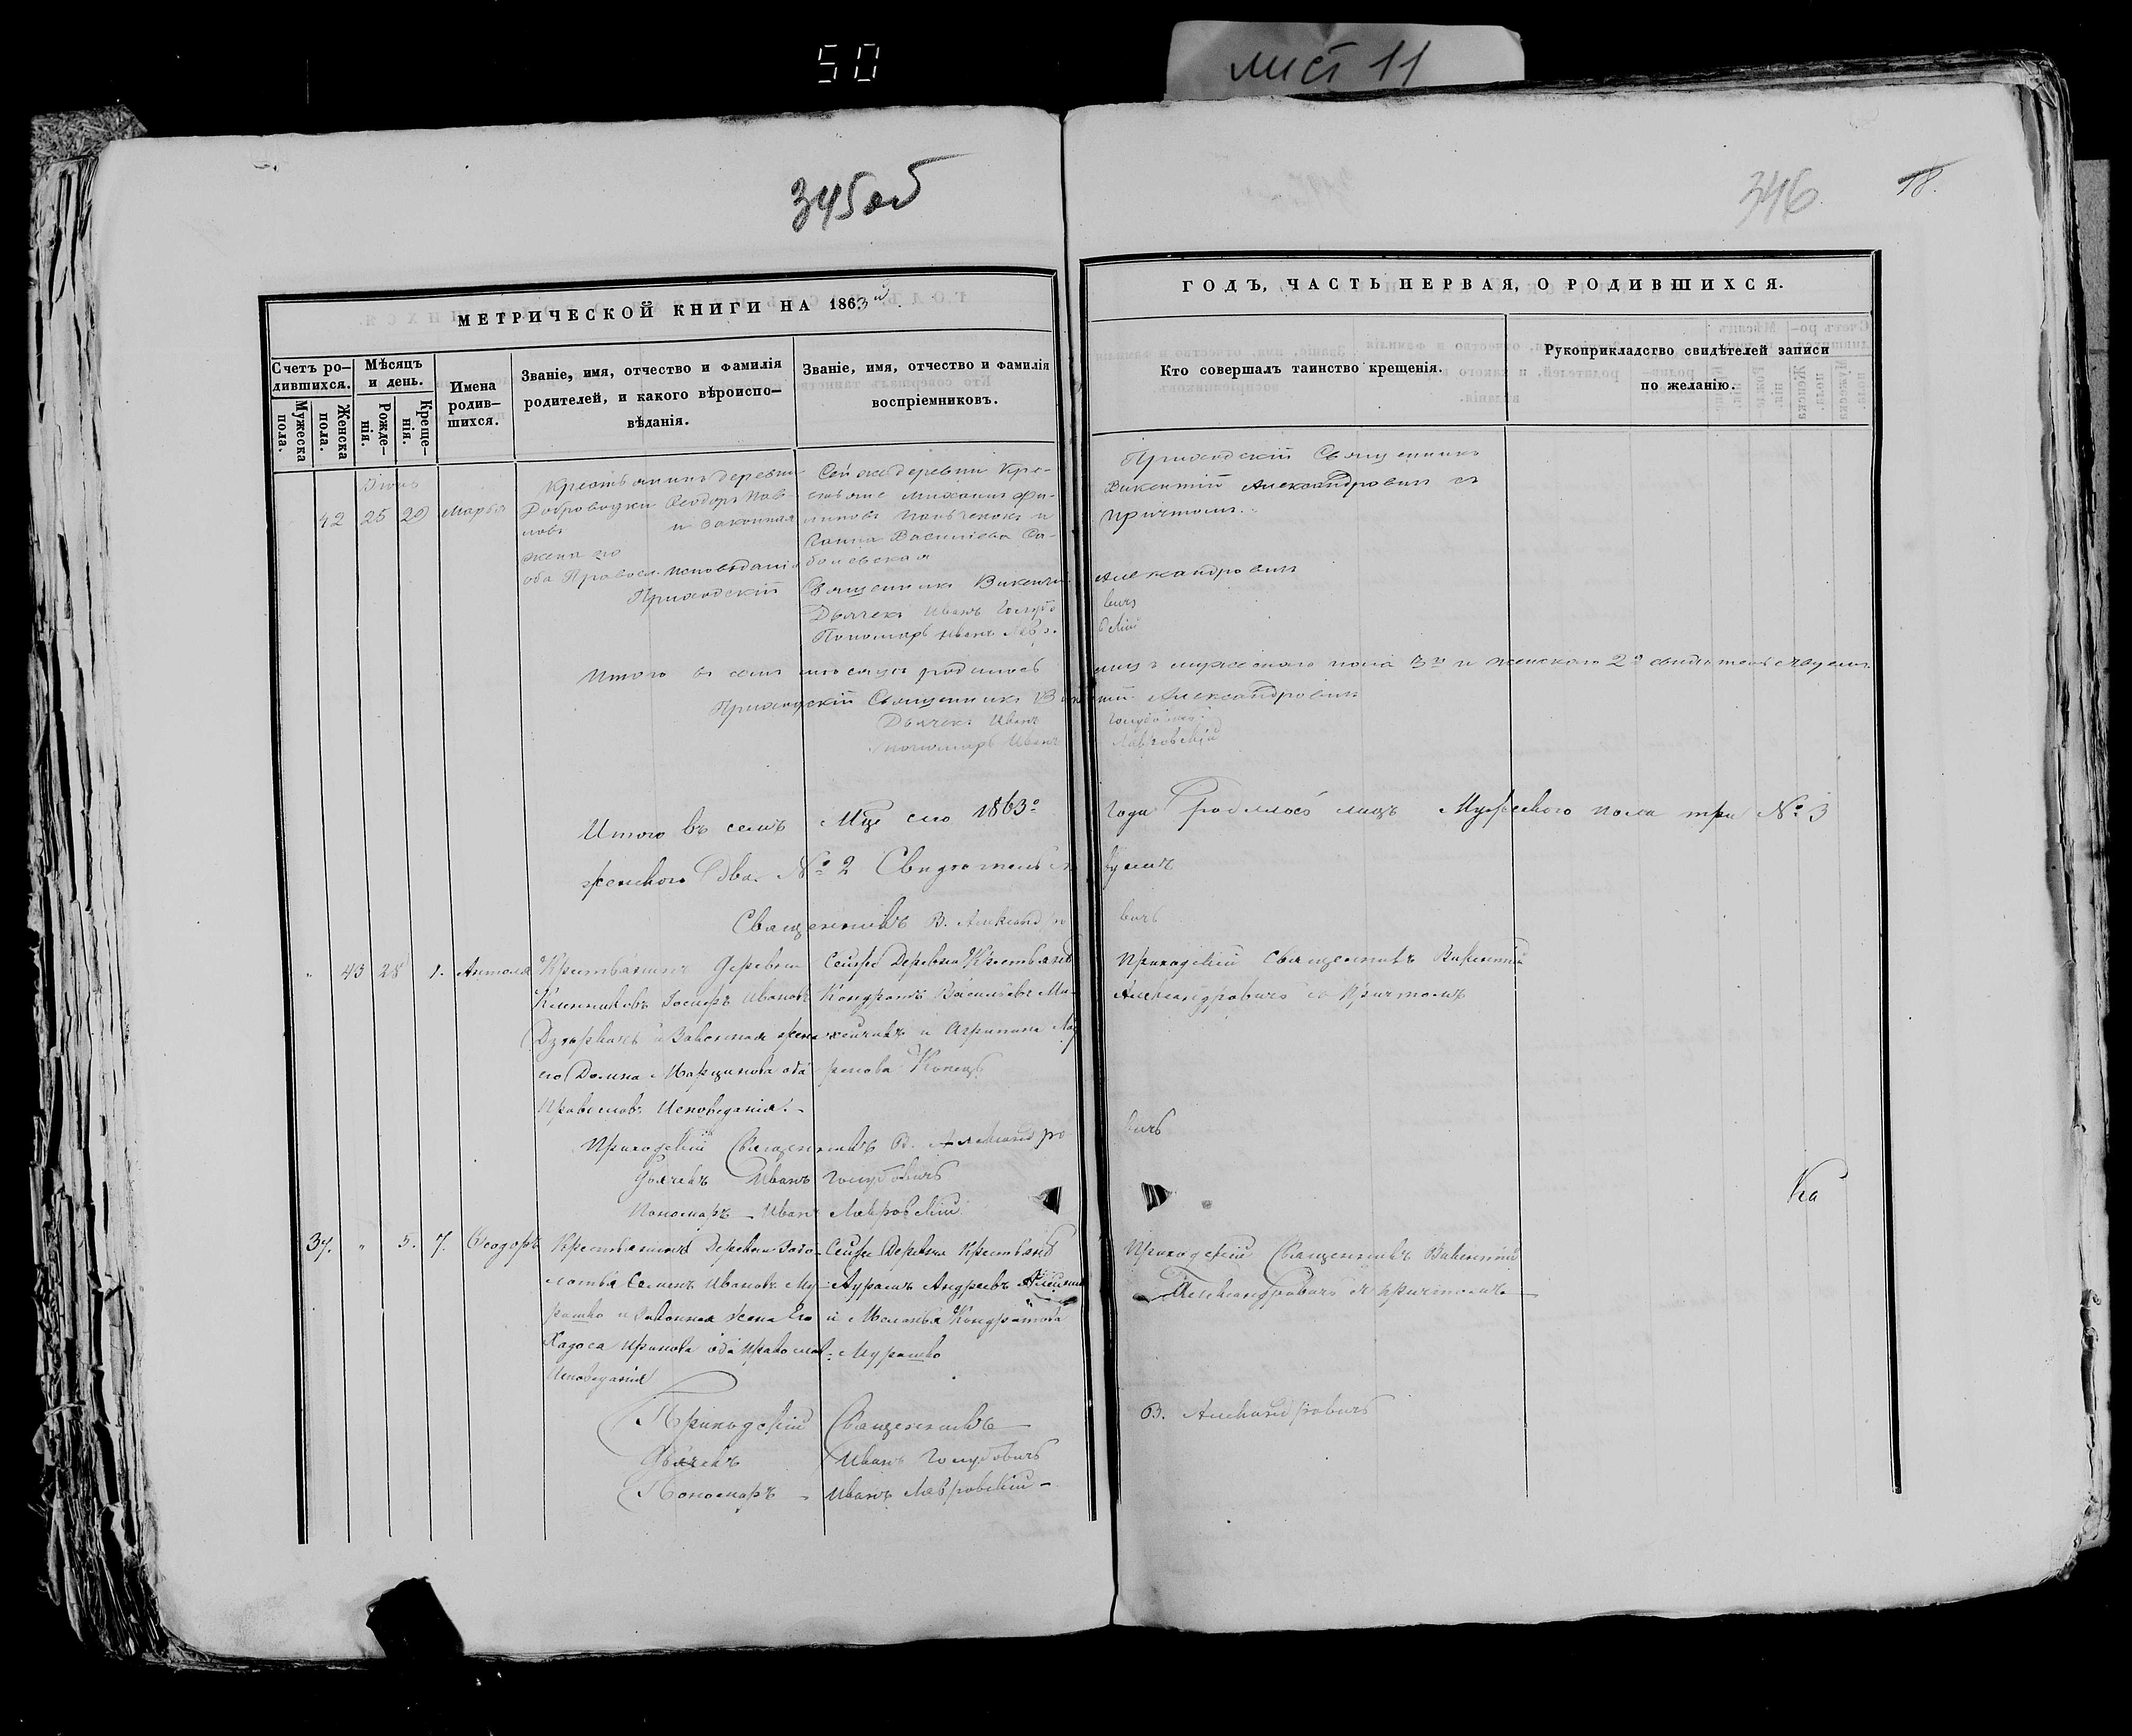 50
лист 11
345 об
346
18.
МЕТРИЧЕСКОЙ КНИГИ НА 1863й
ГОДЪ, ЧАСТЬ ПЕРВАЯ, О РОДИВШИХСЯ.
Счетъ ро-
дившихся.
Мужеска
пола.
Женска
пола.
Мѣсяцъ
и день.
Рожде-
нія.
Креще-
нія.
Имена
родив-
шихся.
Званіе, имя, отчество и фамилія
родителей, и какого вѣроиспо-
вѣданія.
Званіе, имя, отчество и фамилія
воспріемниковъ.
Кто совершалъ таинство крещенія.
Рукоприкладство свидѣтелей записи
по желанію.
Іюнь
42 25 29 Марья
Крестьянинъ деревни
Ѳеодоръ Пав-
ловъ и законная
жена его
оба Правосл. исповѣданія
Сей же деревни Кре-
стьяне Михаилъ Фи-
липовъ и
Ганна Васильева Са-
болевская
Приходскій Священникъ
Викентій Александровичъ съ
причтомъ.
Приходскій Священникъ Викентій Александровичъ
Дьячекъ Иванъ Голубовичъ
Пономарь Иванъ Лавровскій
Итого въ семъ мѣсяцѣ родилось лицъ мужескаго пола 3 и женскаго 2 свидѣтельствуемъ
Приходскій Священникъ Викентій Александровичъ
Дьячекъ Иванъ Голубовичъ
Пономарь Иванъ Лавровскій
Итого въ семъ Мцѣ сего 1863о Года родилось лицъ Мужескаго пола три № 3
женскаго два № 2 Свидѣтельствуемъ
Священникъ В. Александровичъ
" 43 28 1. Антоля
Крестьянинъ Деревни
Іосифъ Ивановъ
и Законная жена
его Домна Марцинова оба
Правослов. Исповеданія. -
Сейже Деревни Крестьяне
Кондратъ Васильевъ Ми-
и Агрипина
Приходскій Священникъ Викентій
Александровичъ съ Причтомъ
Приходскій Священникъ В. Александровичъ
Дьячекъ Иванъ Голубовичъ
Пономаръ - Иванъ Лавровскій
Ка
37. " 3. 7. Ѳеодоръ
Крестьянинъ Деревни Забо-
лотья Семенъ Ивановъ Му-
рашко и Законная Жена Его
Ходоса оба Православ:
Исповеданія
Сейже Деревни Крестьяне
Андреевъ
и Меланья Кондратова
Мурашко
Приходскій Священникъ Викентій
Александровичъ съ причтомъ
Приходскій Священникъ В. Александровичъ
Дьячекъ Иванъ Голубовичъ
Пономаръ - Иванъ Лавровскій -